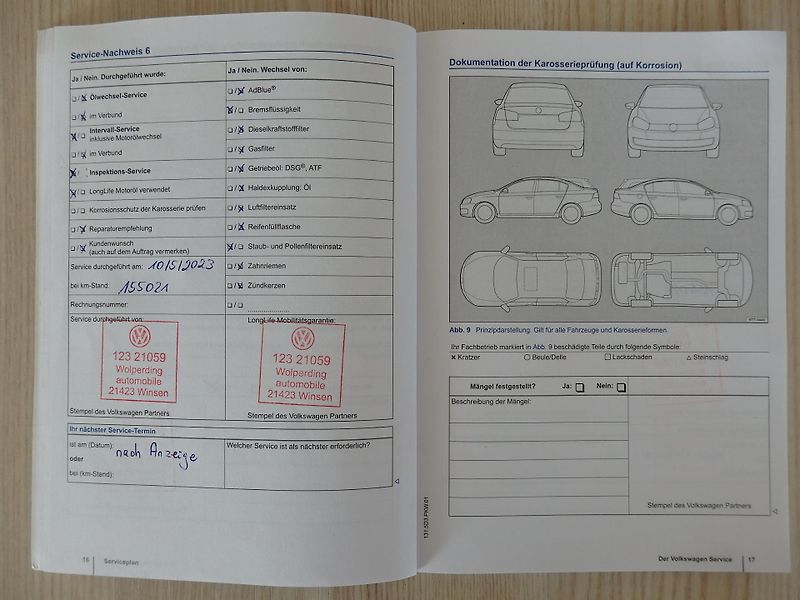 Service-Nachweis 6
Ja / Nein. Durchgeführt wurde:
Ölwechsel-Service
im Verbund
Intervall-Service
inklusive Motorölwechsel
im Verbund
Inspektions-Service
LongLife Motoröl verwendet
Korrosionsschutz der Karosserie prüfen
Reparaturempfehlung
Kundenwunsch
(auch auf dem Auftrag vermerken)
Service durchgeführt am: 10/5/2023
bei km-Stand: 155021
Rechnungsnummer:
Ja / Nein. Wechsel von:
AdBlue®
Bremsflüssigkeit
Dieselkraftstofffilter
Gasfilter
Getriebeöl: DSG®, ATF
Haldexkupplung: Öl
Luftfiltereinsatz
Reifenfüllflasche
Staub- und Pollenfiltereinsatz
Zahnriemen
Zündkerzen
Service durchgeführt von:
123 21059
Wolperding
automobile
21423 Winsen
Stempel des Volkswagen Partners
LongLife Mobilitätsgarantie:
123 21059
Wolperding
automobile
21423 Winsen
Stempel des Volkswagen Partners
Ihr nächster Service-Termin
ist am (Datum):
oder
nach Anzeige
bei (km-Stand):
Welcher Service ist als nächster erforderlich?
16 Serviceplan
131.5D3.PKW.01
Dokumentation der Karosserieprüfung (auf Korrosion)
Abb. 9 Prinzipdarstellung: Gilt für alle Fahrzeuge und Karosserieformen.
Ihr Fachbetrieb markiert in Abb. 9 beschädigte Teile durch folgende Symbole:
Kratzer Beule/Delle Lackschaden Steinschlag
Mängel festgestellt? Ja: Nein:
Beschreibung der Mängel:
Stempel des Volkswagen Partners
Der Volkswagen Service 17